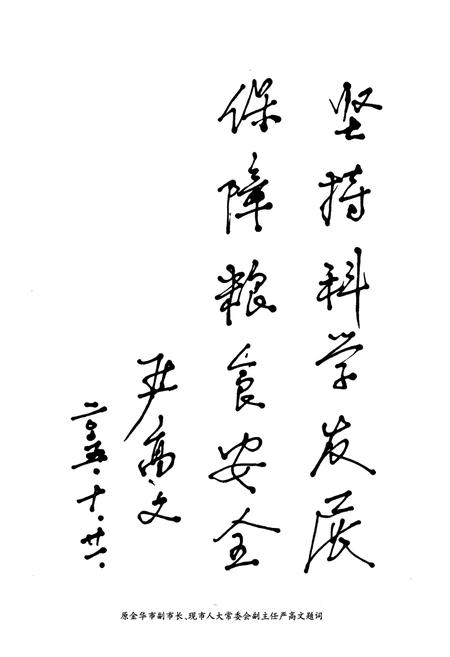 坚持科学发展
保障粮食安全
严高文
二〇〇五.十.廿一.
原金华市副市长、现市人大常委会副主任严高文题词